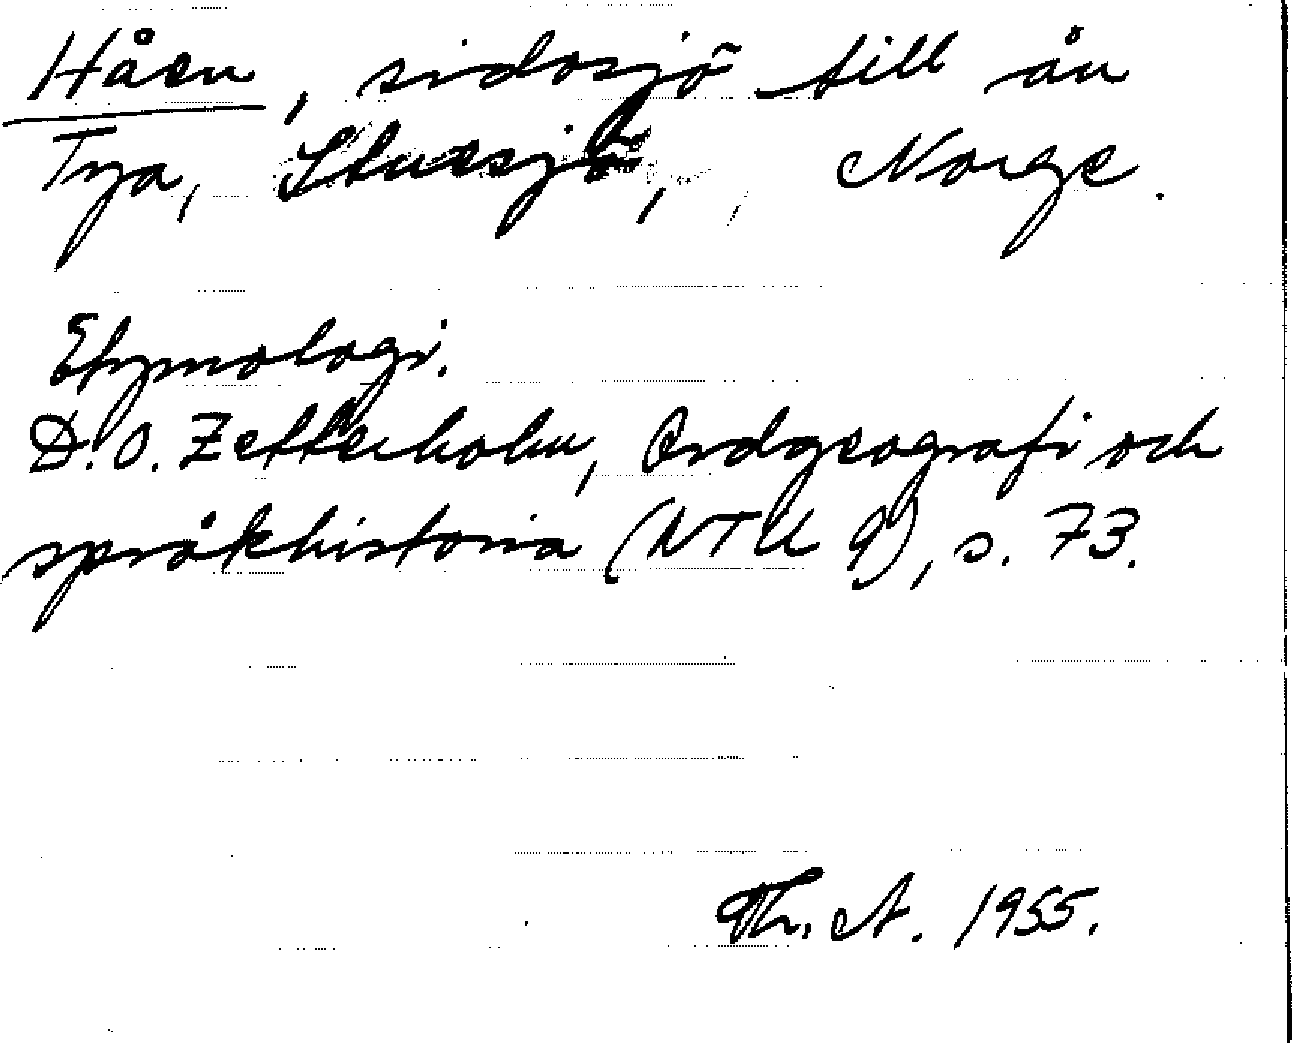 Håen, sidosjö till ån
Tya, Stuesjö, Norge.
Etymologi.
D. O. Zetterholm, Ordgeografi och
språkhistoria (NTU 9), s. 73.
Th. A. 1955.